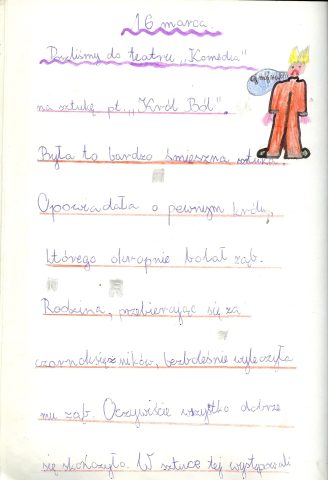 16 marca.
Poszliśmy do teatru „Komedia”
na sztukę pt. „Król Ból”.
Była to bardzo śmieszna sztuka.
Opowiadała o pewnym królu,
którego okropnie bolał ząb.
Rodzina, przebierając się za
czarnoksiężników, bezboleśnie wyleczyła
mu ząb. Oczywiście wszystko dobrze
się skończyło. W sztuce tej występowali